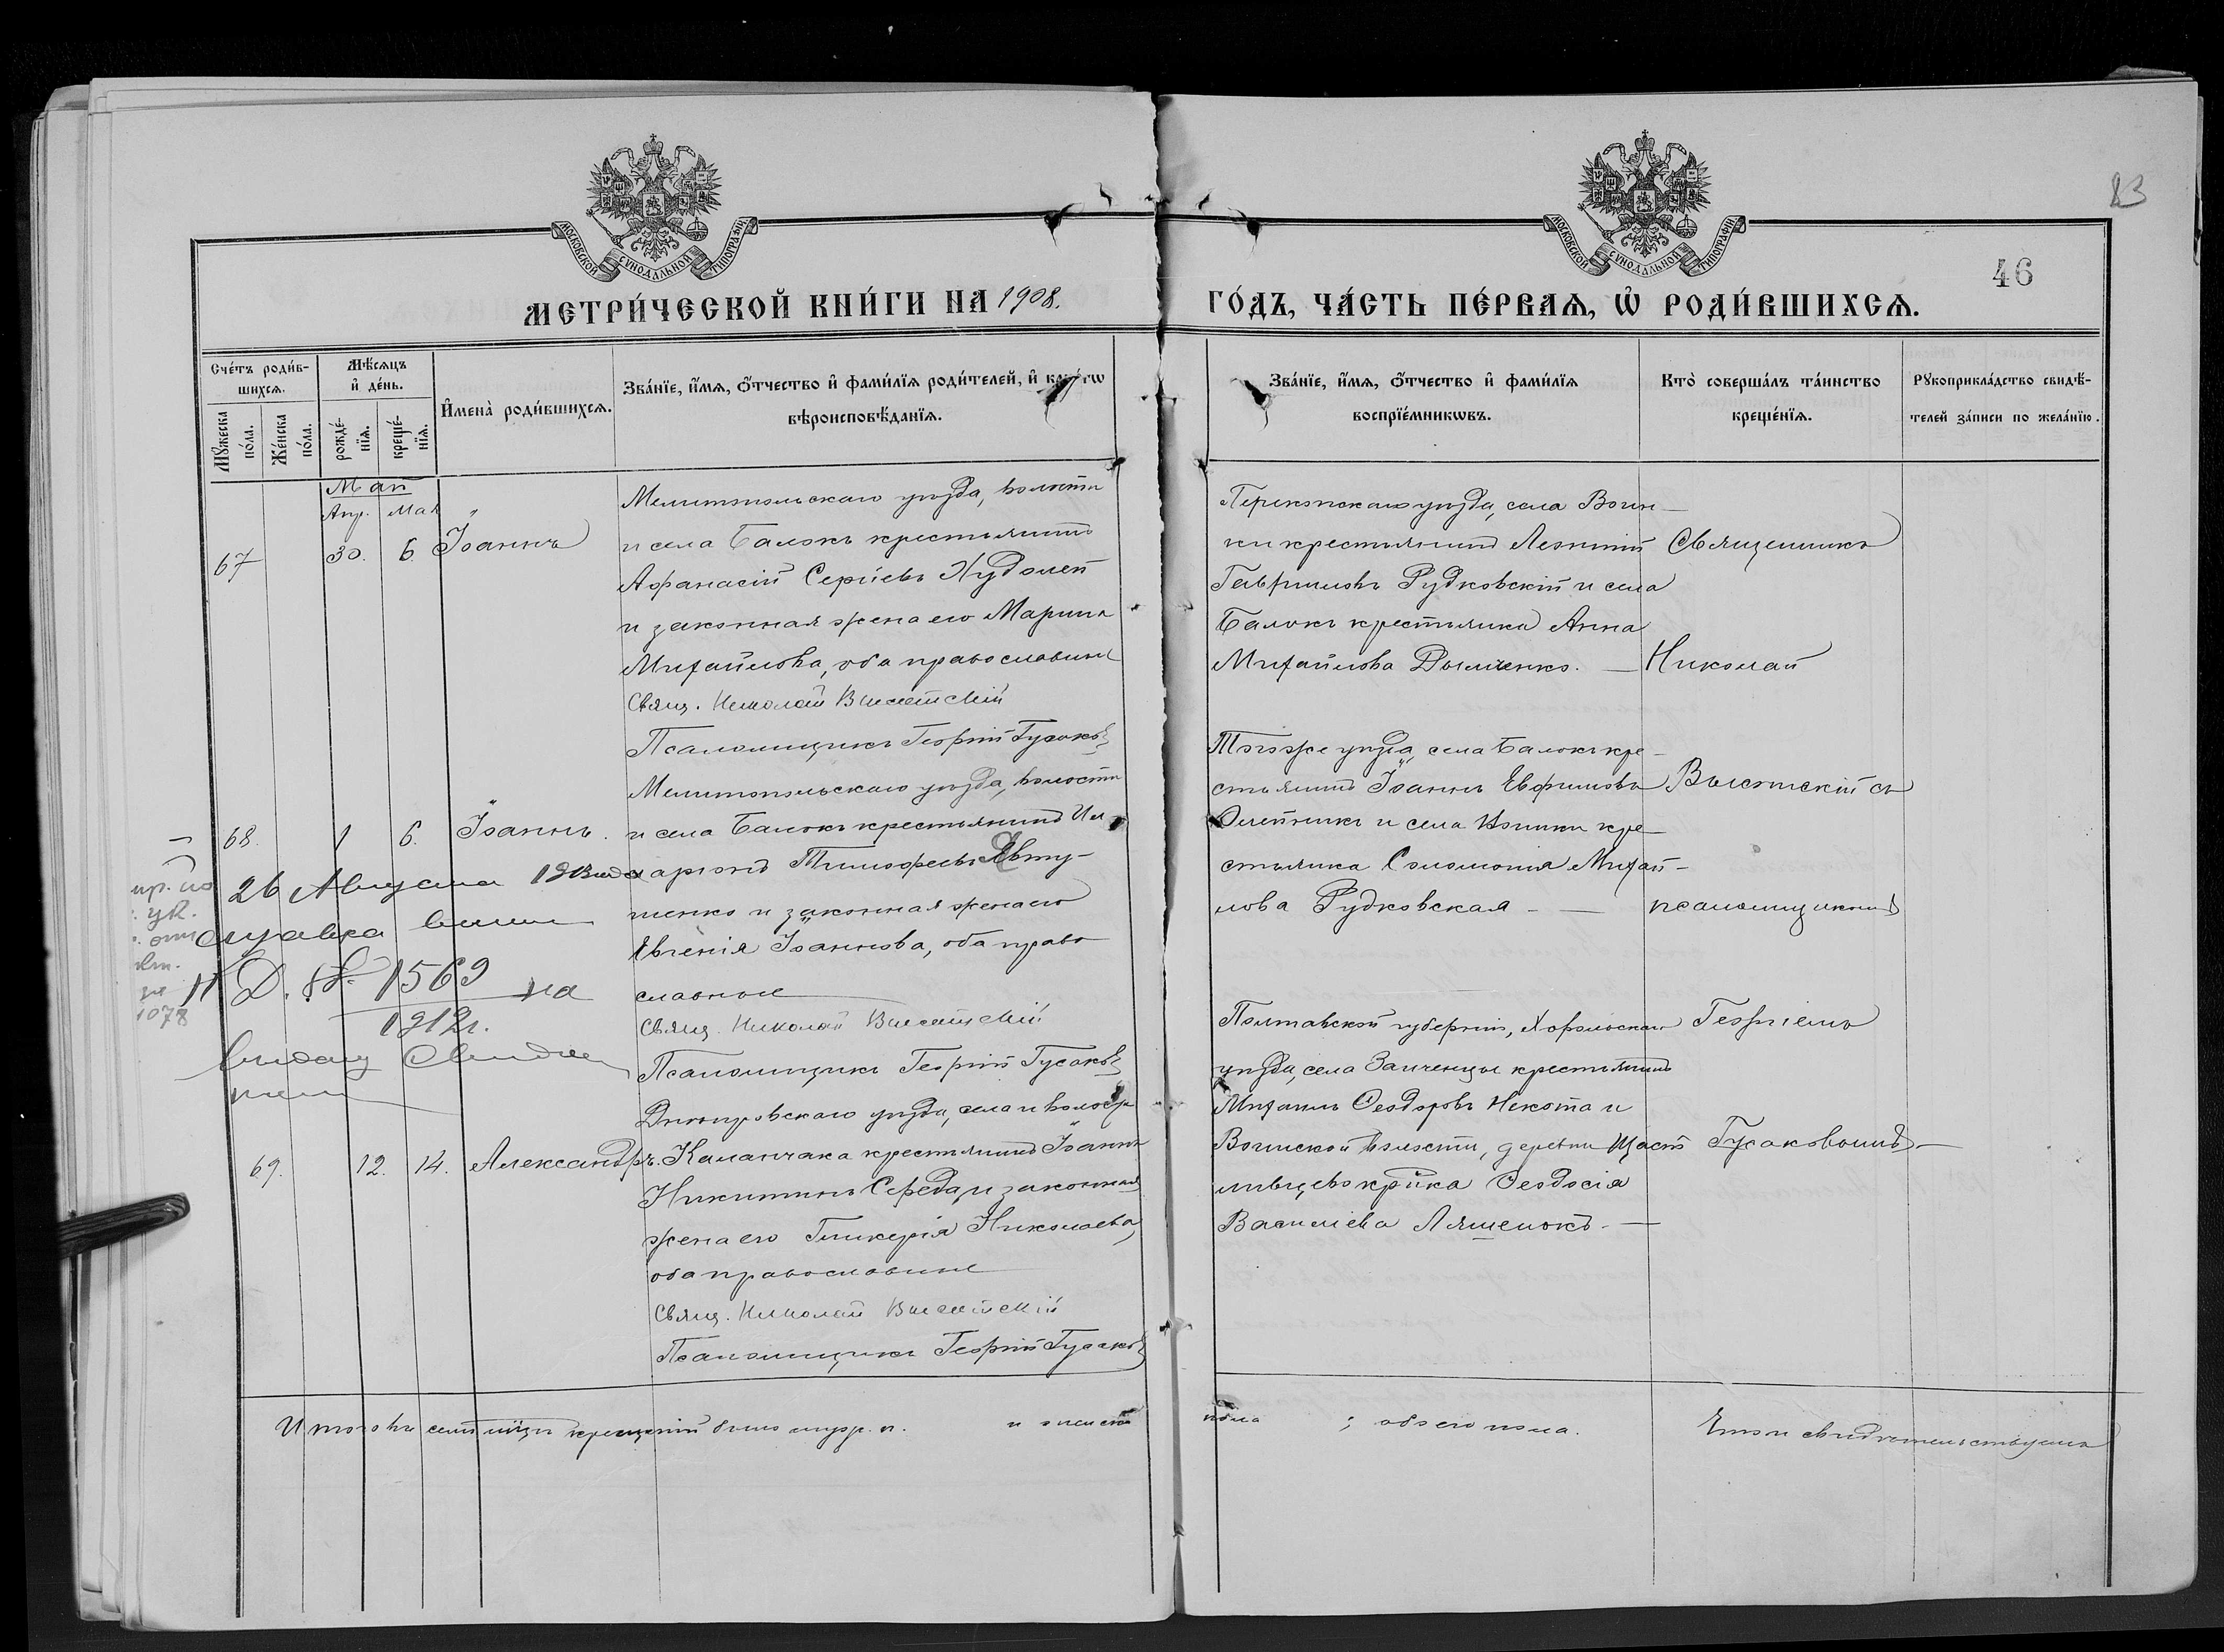 83
46
МОСКОВСКОЙ СѴНОДАЛЬНОЙ ТИПОГРАФІИ
МОСКОВСКОЙ СѴНОДАЛЬНОЙ ТИПОГРАФІИ
МЕТРИ́ЧЕСКОЙ КНИ́ГИ НА 1908.
ГО́ДЪ, ЧА́СТЬ ПЕ́РВАѦ, Ѡ҆ РОДИ́ВШИХСѦ.
Сче́тъ роди́в-
шихсѧ.
Мѹ́жеска по́ла.
Же́нска по́ла.
Мѣ́сѧцъ
и҆ де́нь.
рожде́-нїѧ.
креще́-нїѧ.
И҆мена̀ роди́вшихсѧ.
Зва́нїе, и҆́мѧ, ѻ҆́тчество и҆ фами́лїѧ роди́телей, и҆ како́гѡ
вѣроисповѣ́данїѧ.
Зва́нїе, и҆́мѧ, ѻ҆́тчество и҆ фами́лїѧ
воспрїе́мникѡвъ.
Кто̀ соверша́лъ та́инство
креще́нїѧ.
Рѹкоприкла́дство свидѣ́-
телей за́писи по жела́нїю.
Май
Апр. Мая
67 30. 6. Іоаннъ
Мелитопольскаго уѣзда, волости
и села Балокъ крестьянинъ
Аѳанасій Сергіевъ Худолей
и законная жена его Марина
Михайлова, оба православные
Свящ. Николай Высотскій
Псаломщикъ Георгій Гусаковъ
Перекопскаго уѣзда, села Воин-
ки крестьянинъ Леонтій
Гавриловъ Рудковскій и села
Балокъ крестьянка Анна
Михайлова Дымченко. —
Священникъ
Николай
68. 1 6. Іоаннъ.
Мелитопольскаго уѣзда, волости
и села Балокъ крестьянинъ Ил-
аріонъ Тимоѳеевъ Явту-
шенко и законная жена его
Евгенія Іоаннова, оба право
славные
Свящ. Николай Высотскій
Псаломщикъ Георгій Гусаковъ
Тогоже уѣзда, села Балокъ кре-
стьянинъ Іоаннъ Евфимовъ
Олейникъ и села Воинки кре-
стьянка Соломонія Михай-
лова Рудковская —
Высотскій съ
псаломщикомъ
26 Августа
Д. № 1569
1912г.
на
1078
69. 12. 14. Александръ.
Днѣпровскаго уѣзда, села и волости
Каланчака крестьянинъ Іоаннъ
Никитинъ Середа и законная
жена его Гликерія Николаева,
оба православные
Свящ. Николай Высотскій
Псаломщикъ Георгій Гусаковъ
Полтавской губерніи, Хорольскаго
уѣзда, села Заиченцы крестьянинъ
Михаилъ Ѳеодоровъ Нехота и
Воинской волости, деревни Щаст
ливцево кр-ка Ѳеодосія
Василіева Ляшенокъ. —
Георгіемъ
Гусаковымъ —
Итого въ семъ м-цѣ крещеній было муж. п. и женска
пола ; обоего пола. Въ томъ свидѣтельствуемъ